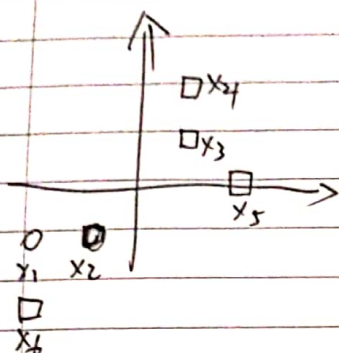 x4
x3
x5
x1 x2
x6